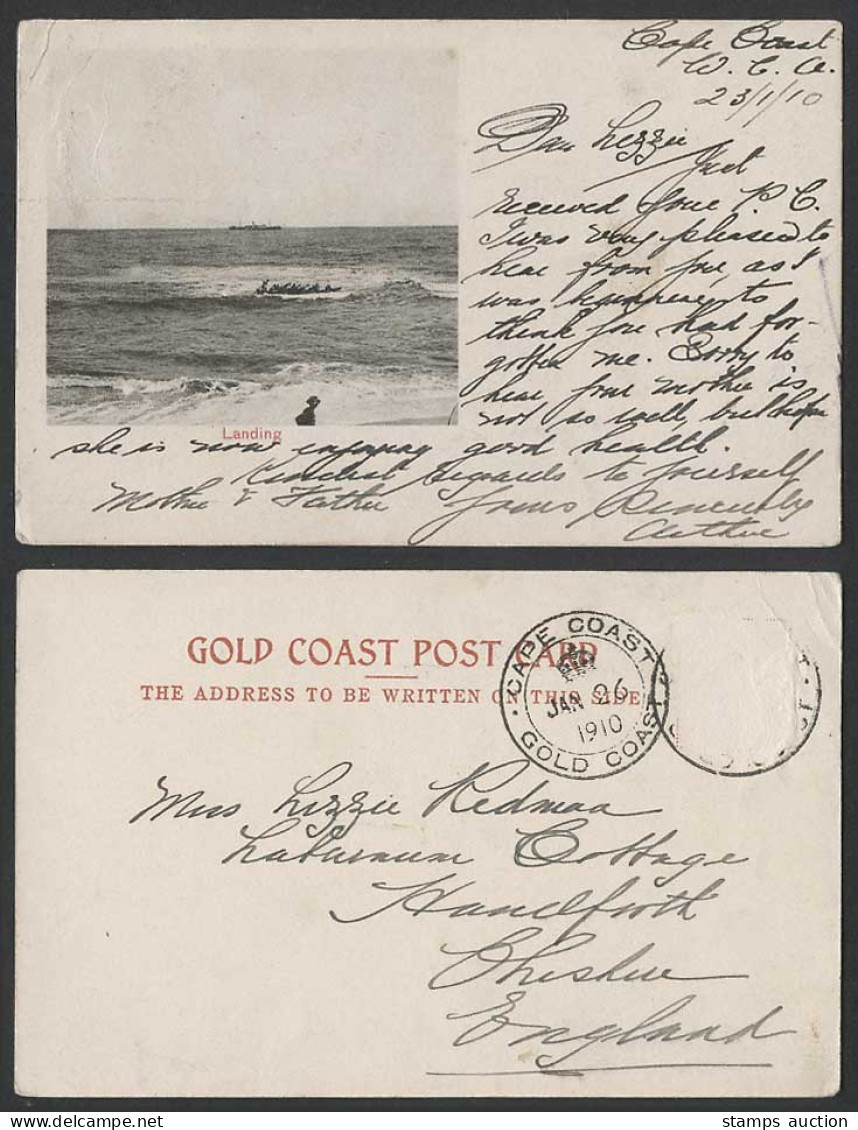 Cape Coast
W. C. A.
23/1/10
Dear Lizzie
Just
received your P. C.
I was very pleased to
hear from you, as I
was beginning to
think you had for-
gotten me. Sorry to
hear your mother is
not so well, but hope
Landing
she is now enjoying good health.
Kindest Regards to yourself
Mother & Father yours Sincerely
Arthur
GOLD COAST POST CARD
THE ADDRESS TO BE WRITTEN ON THIS SIDE
CAPE COAST
JAN 26
1910
GOLD COAST
Miss Lizzie
Laburnum Cottage
Handforth
Cheshire
England
stamps auction